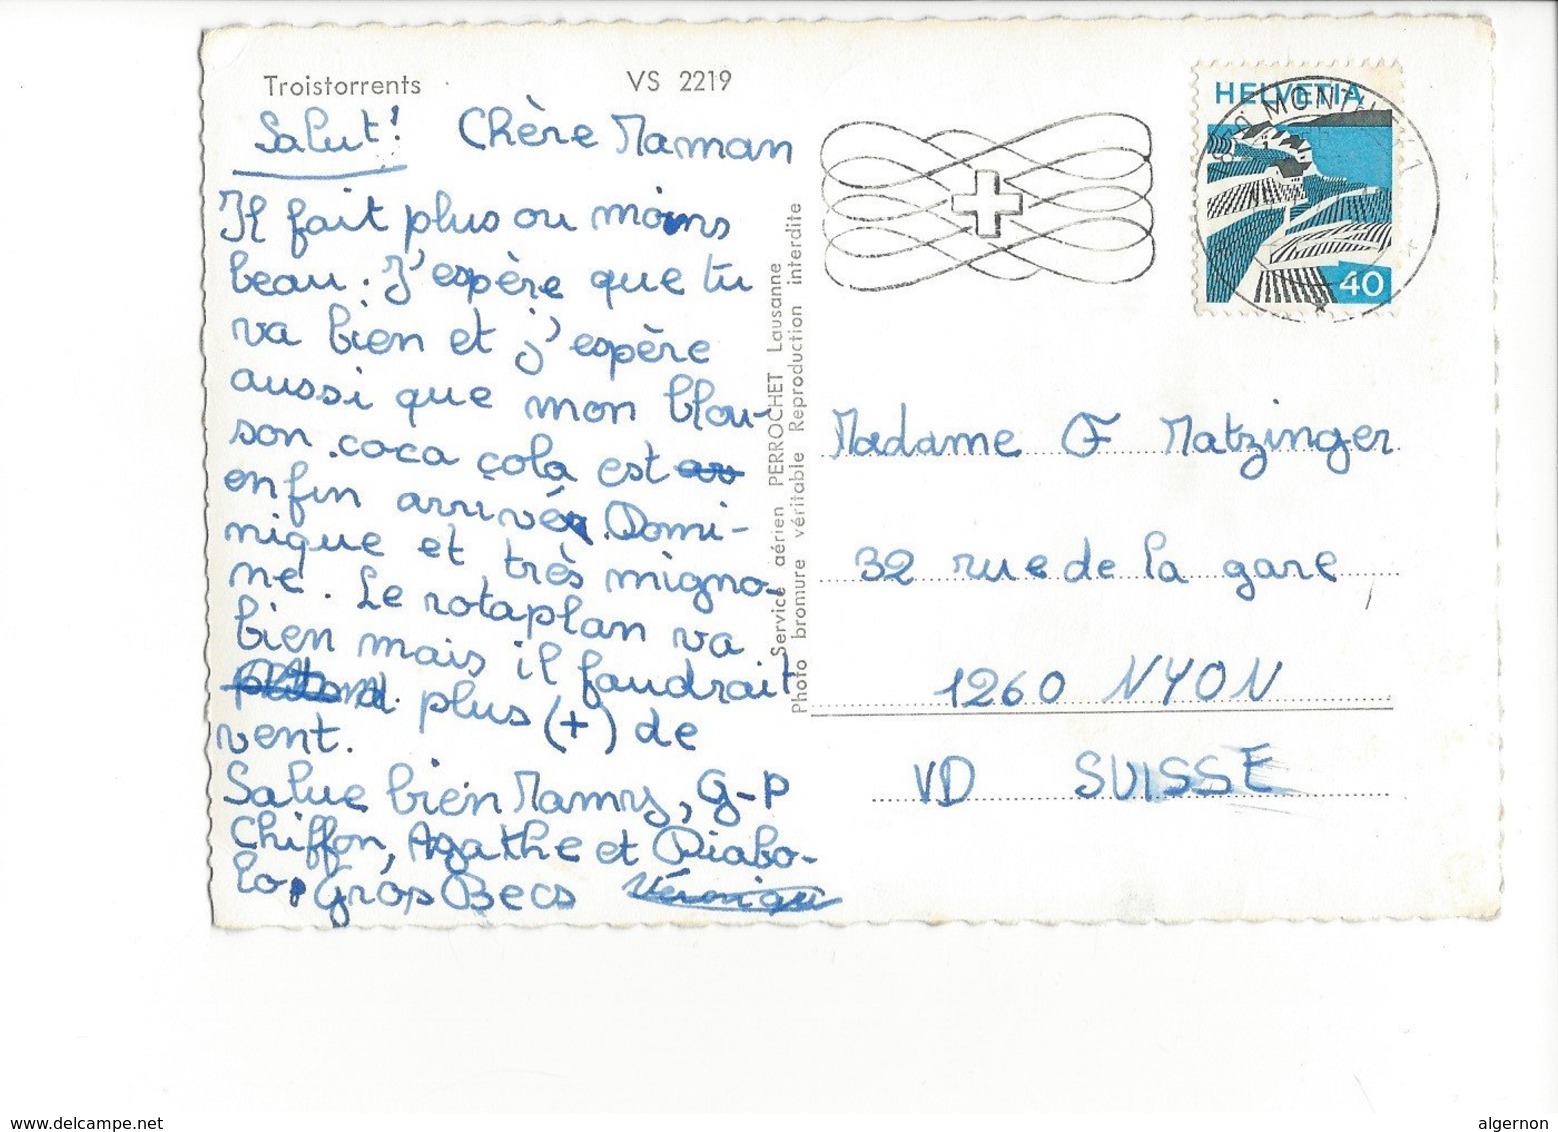 Troistorrents
VS 2219
Salut! Chère Maman
Il fait plus ou moins
beau. J'espère que tu
va bien et j'espère
aussi que mon blou-
son coca cola est
enfin arrivé. Domi-
nique et très migno-
ne. Le rotaplan va
bien mais il faudrait
plus (+) de
vent.
Salue bien Mamys, G-P
Chiffon, Agathe et Diabo-
lo, Gros Becs Véronique
Service aérien PERROCHET Lausanne
Photo bromure véritable Reproduction interdite
HELVETIA
40
Madame F Matzinger
32 rue de la gare
1260 NYON
VD SUISSE
www.delcampe.net
algernon